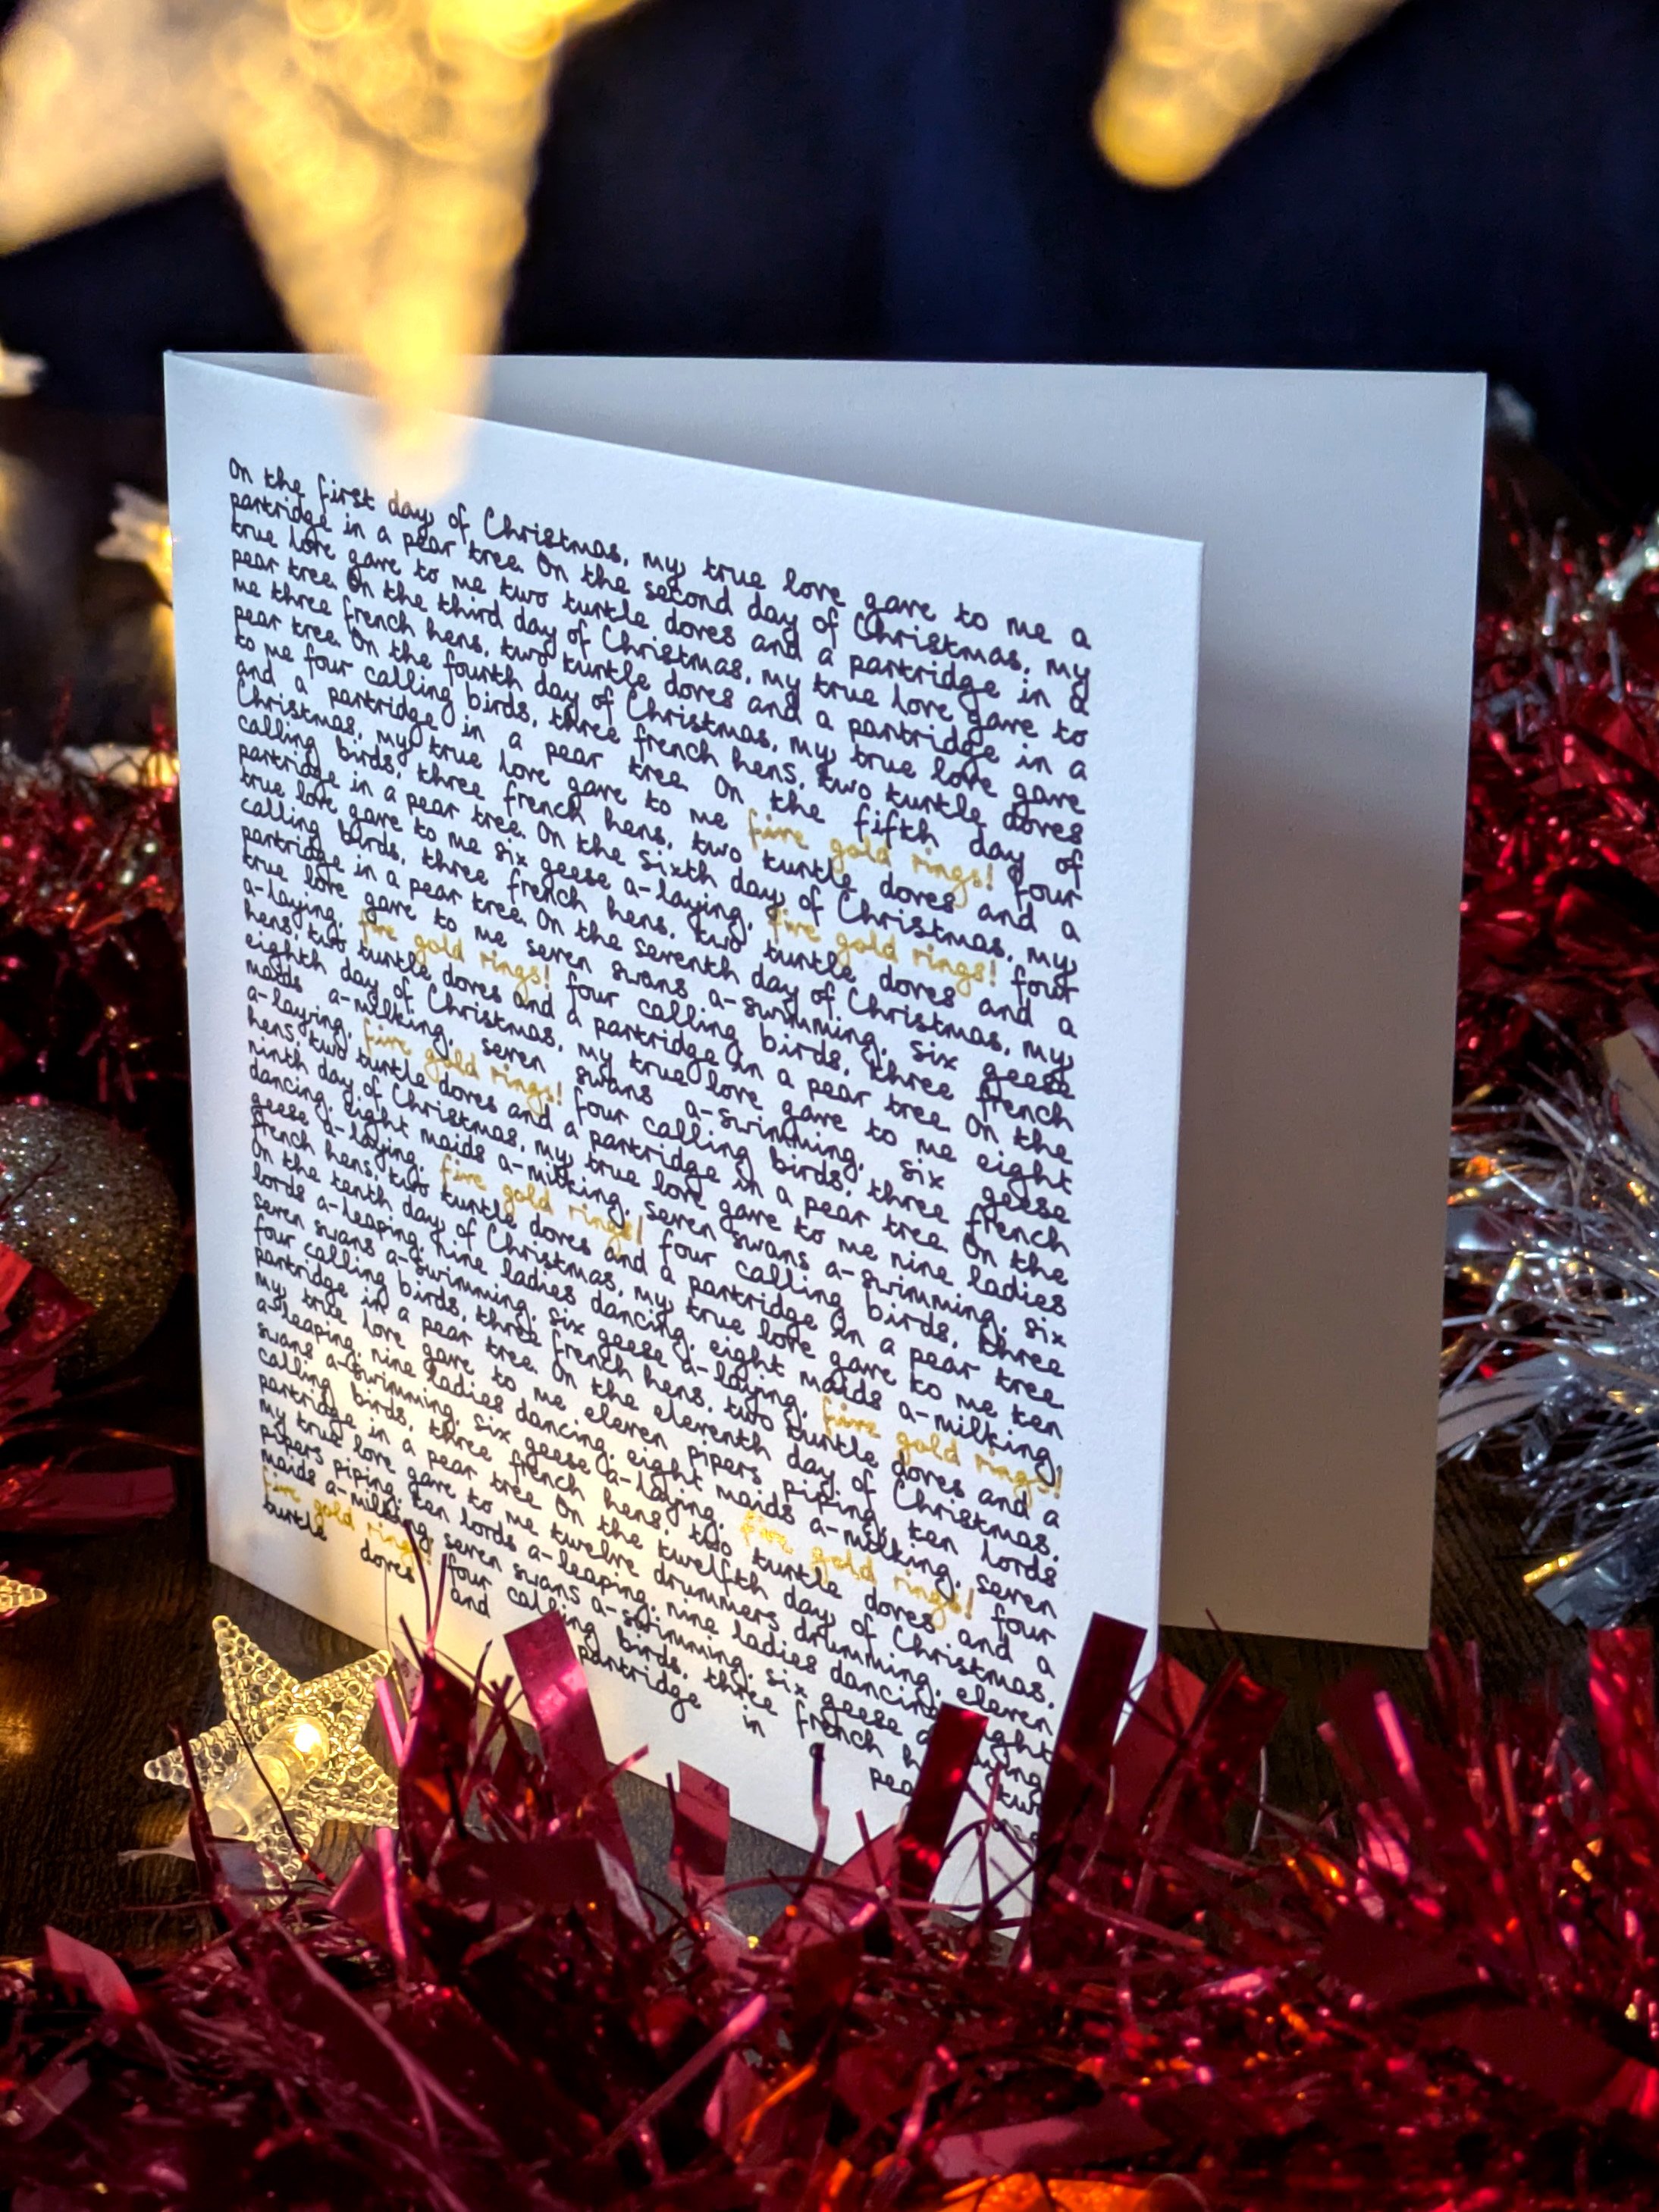 On the first day of Christmas, my true love gave to me a
partridge in a pear tree. On the second day of Christmas, my
true love gave to me two turtle doves and a partridge in a
pear tree. On the third day of Christmas, my true love gave to
me three french hens, two turtle doves and a partridge in a
pear tree. On the fourth day of Christmas, my true love gave
to me four calling birds, three french hens, two turtle doves
and a partridge in a pear tree. On the fifth day of
Christmas, my true love gave to me five gold rings! four
calling birds, three french hens, two turtle doves and a
partridge in a pear tree. On the sixth day of Christmas, my
true love gave to me six geese a-laying, five gold rings! four
calling birds, three french hens, two turtle doves and a
partridge in a pear tree. On the seventh day of Christmas, my
true love gave to me seven swans a-swimming, six geese
a-laying, five gold rings! four calling birds, three french
hens, two turtle doves and a partridge in a pear tree. On the
eighth day of Christmas, my true love gave to me eight
maids a-milking, seven swans a-swimming, six geese
a-laying, five gold rings! four calling birds, three french
hens, two turtle doves and a partridge in a pear tree. On the
ninth day of Christmas, my true love gave to me nine ladies
dancing, eight maids a-milking, seven swans a-swimming, six
geese a-laying, five gold rings! four calling birds, three
french hens, two turtle doves and a partridge in a pear tree.
On the tenth day of Christmas, my true love gave to me ten
lords a-leaping, nine ladies dancing, eight maids a-milking,
seven swans a-swimming, six geese a-laying, five gold rings!
four calling birds, three french hens, two turtle doves and a
partridge in a pear tree. On the eleventh day of Christmas,
my true love gave to me eleven pipers piping, ten lords
a-leaping, nine ladies dancing, eight maids a-milking, seven
swans a-swimming, six geese a-laying, five gold rings! four
calling birds, three french hens, two turtle doves and a
partridge in a pear tree. On the twelfth day of Christmas,
my true love gave to me twelve drummers drumming, eleven
pipers piping, ten lords a-leaping, nine ladies dancing, eight
maids a-milking, seven swans a-swimming, six geese
five gold rings! four calling birds, three french two
turtle doves and a partridge in a